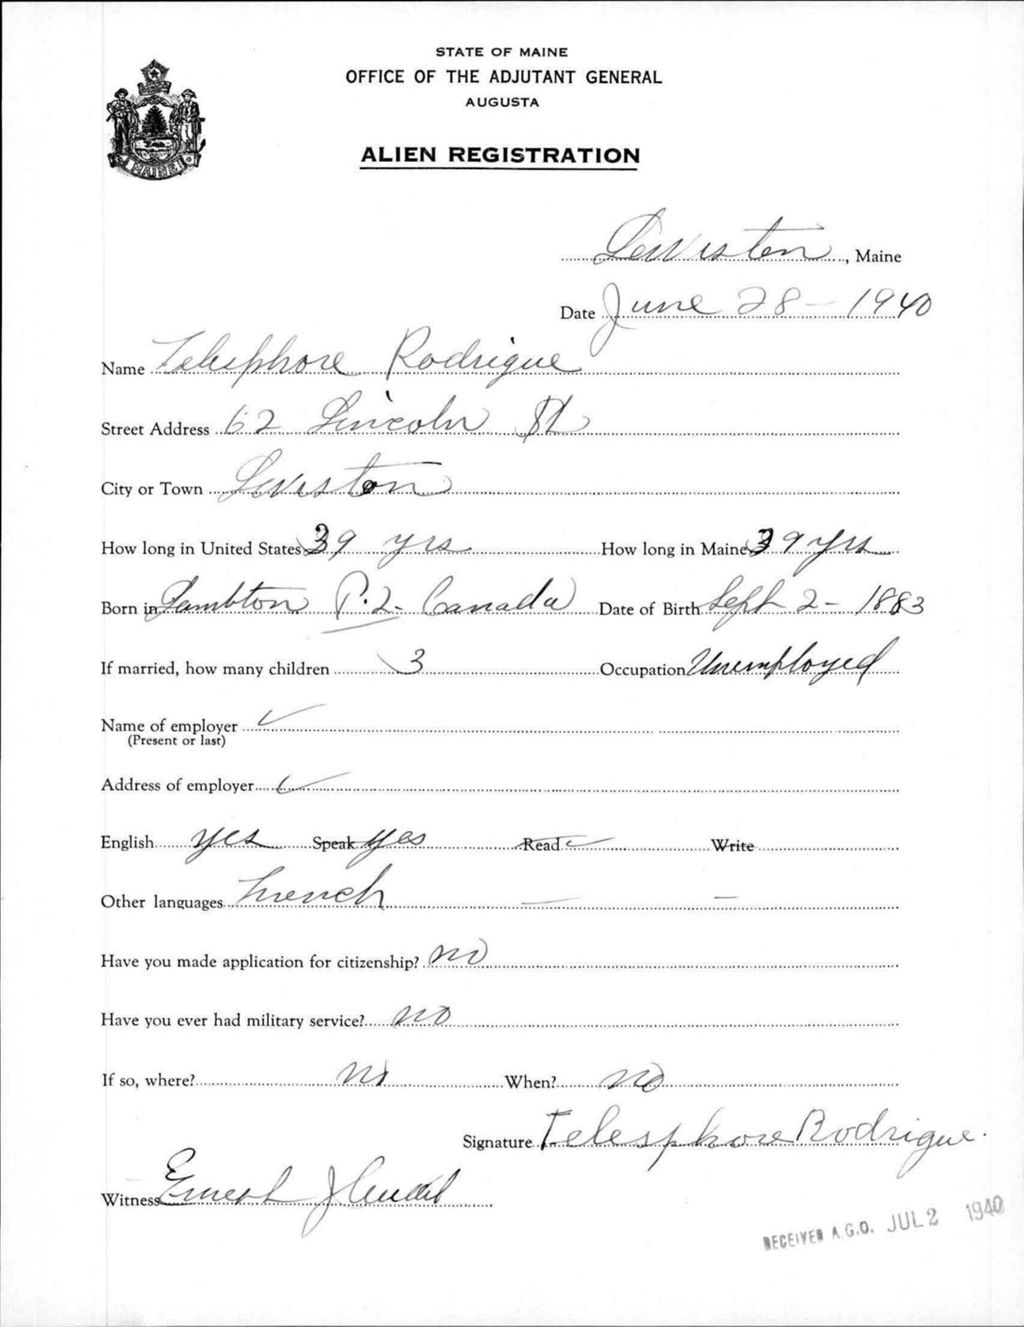 STATE OF MAINE
OFFICE OF THE ADJUTANT GENERAL
AUGUSTA
ALIEN REGISTRATION
MAINE
Lewiston, Maine
Date June 28 - 1940
Name Telesphore Rodrigue
Street Address 62 Lincoln St
City or Town Lewiston
How long in United States 39 yrs How long in Maine 39 yrs
Born in Lambton P.Q. Canada Date of Birth Sept 2 - 1883
If married, how many children 3 Occupation Unemployed
Name of employer ✓
(Present or last)
Address of employer ✓
English yes Speak yes Read ✓ Write
Other languages French — —
Have you made application for citizenship? no
Have you ever had military service? no
If so, where? no When? no
Signature Telesphore Rodrigue.
Witness Ernest J
RECEIVED A.G.O. JUL 2 1940